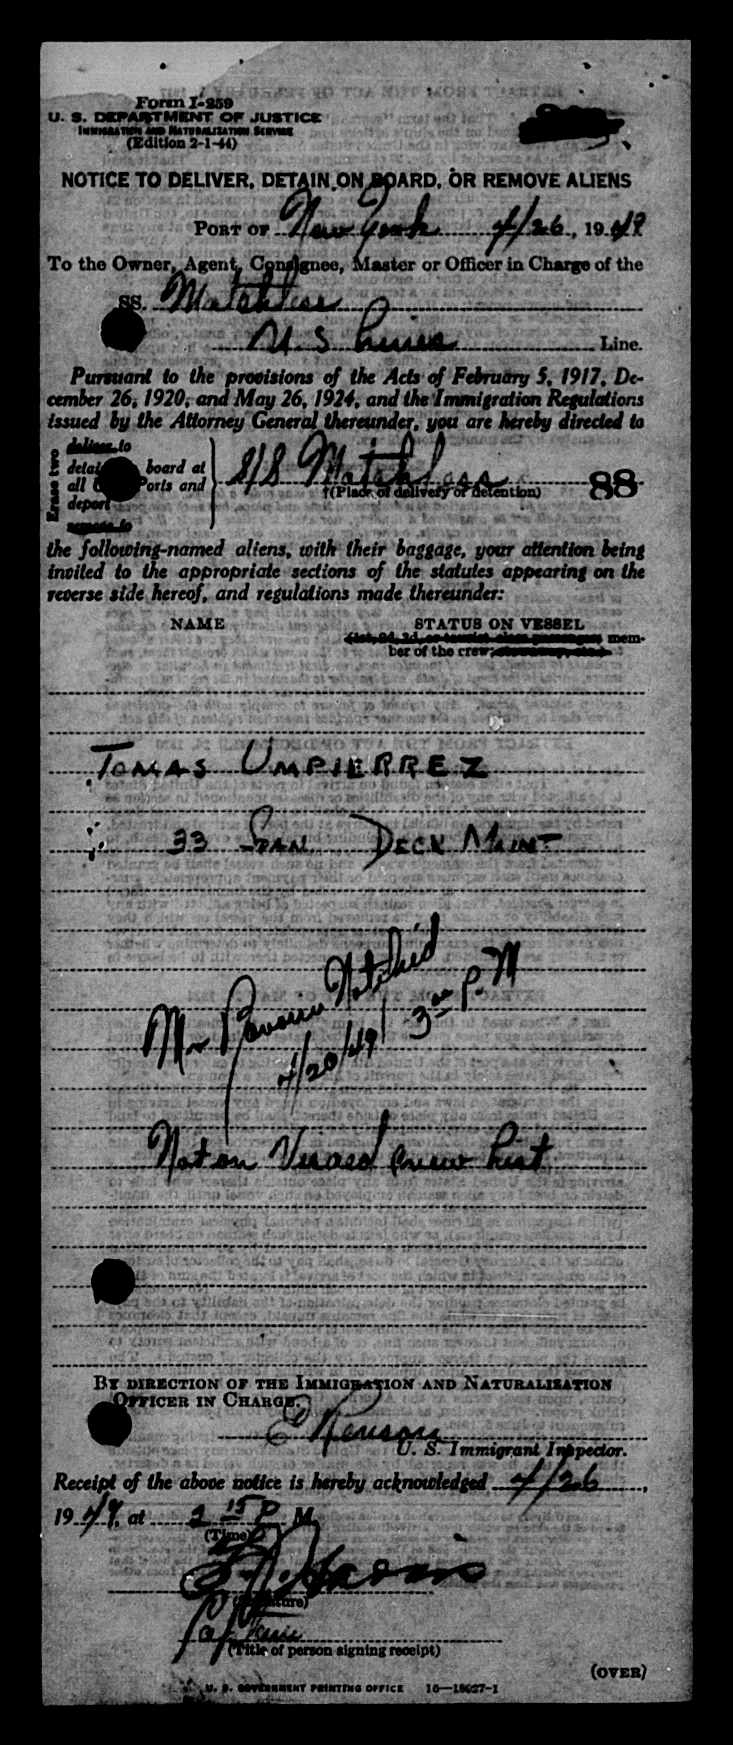 Form I-259
U. S. DEPARTMENT OF JUSTICE
IMMIGRATION AND NATURALIZATION SERVICE
(Edition 2-1-44)
NOTICE TO DELIVER, DETAIN ON BOARD, OR REMOVE ALIENS
PORT OF New York 4/26, 1949
To the Owner, Agent, Consignee, Master or Officer in Charge of the
SS. Matchless
U.S. Lines Line.
Pursuant to the provisions of the Acts of February 5, 1917, De-
cember 26, 1920, and May 26, 1924, and the Immigration Regulations
issued by the Attorney General thereunder, you are hereby directed to
Erase two
deliver to
board at
all Ports and
deport
remove to
S/S Matchless
88
†(Place of delivery or detention)
the following-named aliens, with their baggage, your attention being
invited to the appropriate sections of the statutes appearing on the
reverse side hereof, and regulations made thereunder:
NAME STATUS ON VESSEL
(1st, 2d, 3d, or tourist class passenger, mem-
ber of the crew,
TOMAS UMPIERREZ
33 SPAN DECK MAINT
Mr Notified
4/20/49 3 00 P.M
Not on Vessel Crew List
BY DIRECTION OF THE IMMIGRATION AND NATURALIZATION
OFFICER IN CHARGE.
U. S. Immigrant Inspector.
Receipt of the above notice is hereby acknowledged 4/26,
1949, at 2 15 P M.
(Time)
(Signature)
Captain
(Title of person signing receipt)
(OVER)
U. S. GOVERNMENT PRINTING OFFICE 16—18027-1